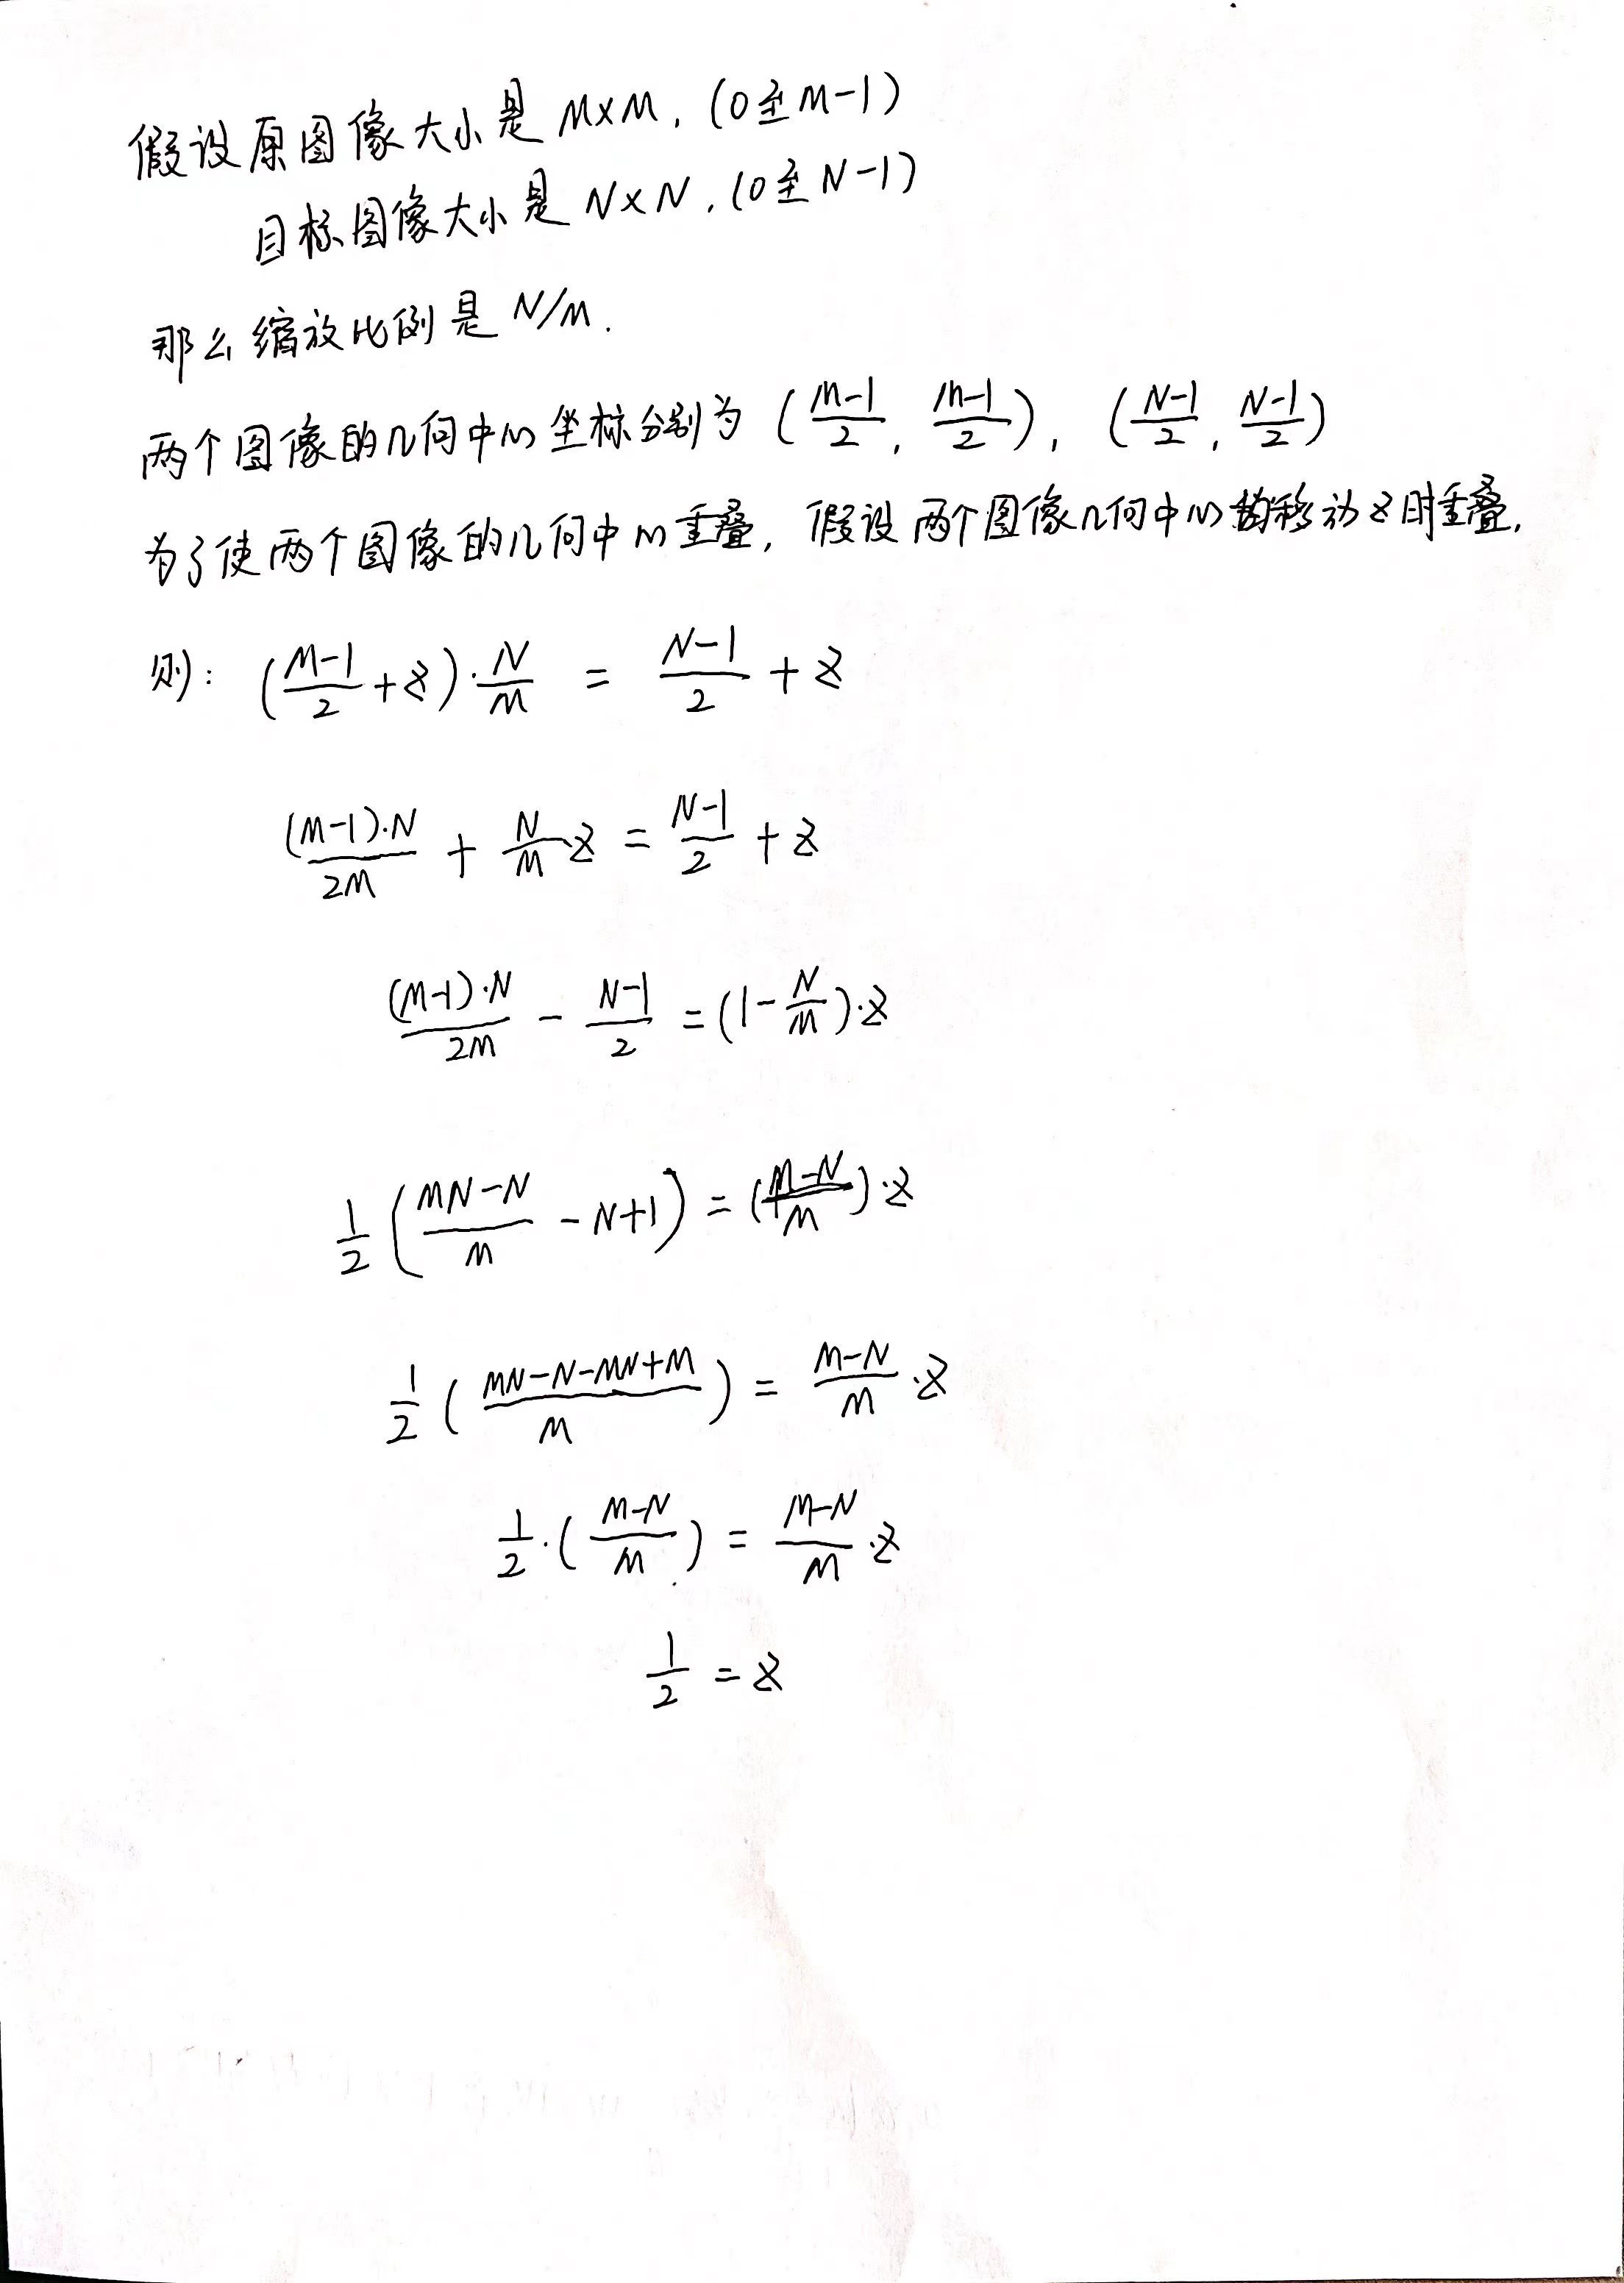 假设原图像大小是 M×M, (0至M-1)
目标图像大小是 N×N, (0至N-1)
那么缩放比例是 N/M.
两个图像的几何中心坐标分别为 (\frac{M-1}{2}, \frac{M-1}{2}), (\frac{N-1}{2}, \frac{N-1}{2})
为了使两个图像的几何中心重叠, 假设两个图像几何中心均移动z时重叠,
则: (\frac{M-1}{2}+z)·\frac{N}{M} = \frac{N-1}{2}+z
\frac{(M-1)·N}{2M} + \frac{N}{M}z = \frac{N-1}{2}+z
\frac{(M-1)·N}{2M} - \frac{N-1}{2} = (1-\frac{N}{M})·z
\frac{1}{2}(\frac{MN-N}{M}-N+1) = (\frac{M-N}{M})·z
\frac{1}{2}(\frac{MN-N-MN+M}{M}) = \frac{M-N}{M}·z
\frac{1}{2}·(\frac{M-N}{M}) = \frac{M-N}{M}·z
\frac{1}{2} = z